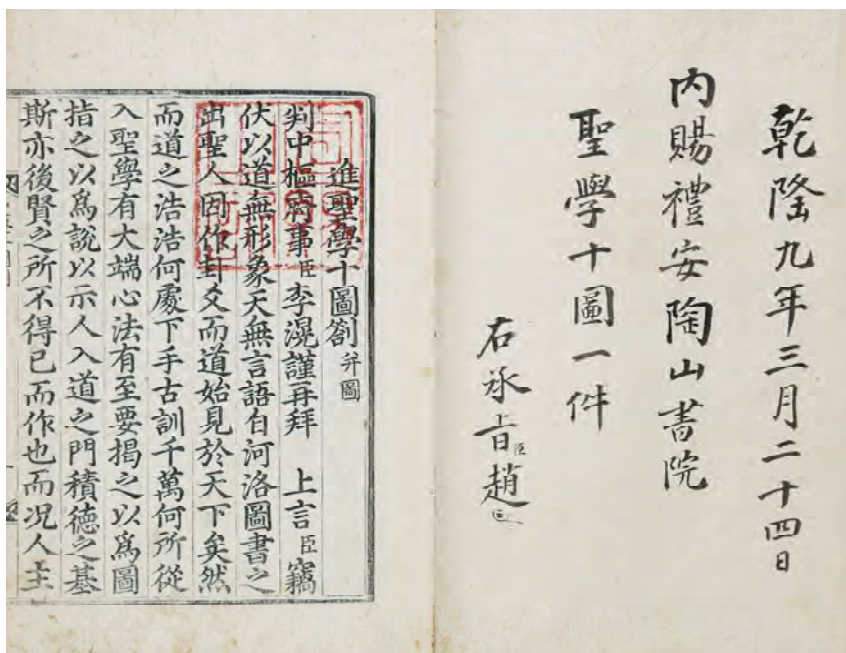 乾隆九年三月二十四日
內賜禮安陶山書院
聖學十圖一件
右承旨臣趙
進聖學十圖劄 幷圖
判中樞府事臣李滉謹再拜 上言臣竊
伏以道無形象天無言語自河洛圖書之
出聖人因作卦爻而道始見於天下矣然
而道之浩浩何處下手古訓千萬何所從
入聖學有大端心法有至要揭之以爲圖
指之以爲說以示人入道之門積德之基
斯亦後賢之所不得已而作也而況人主